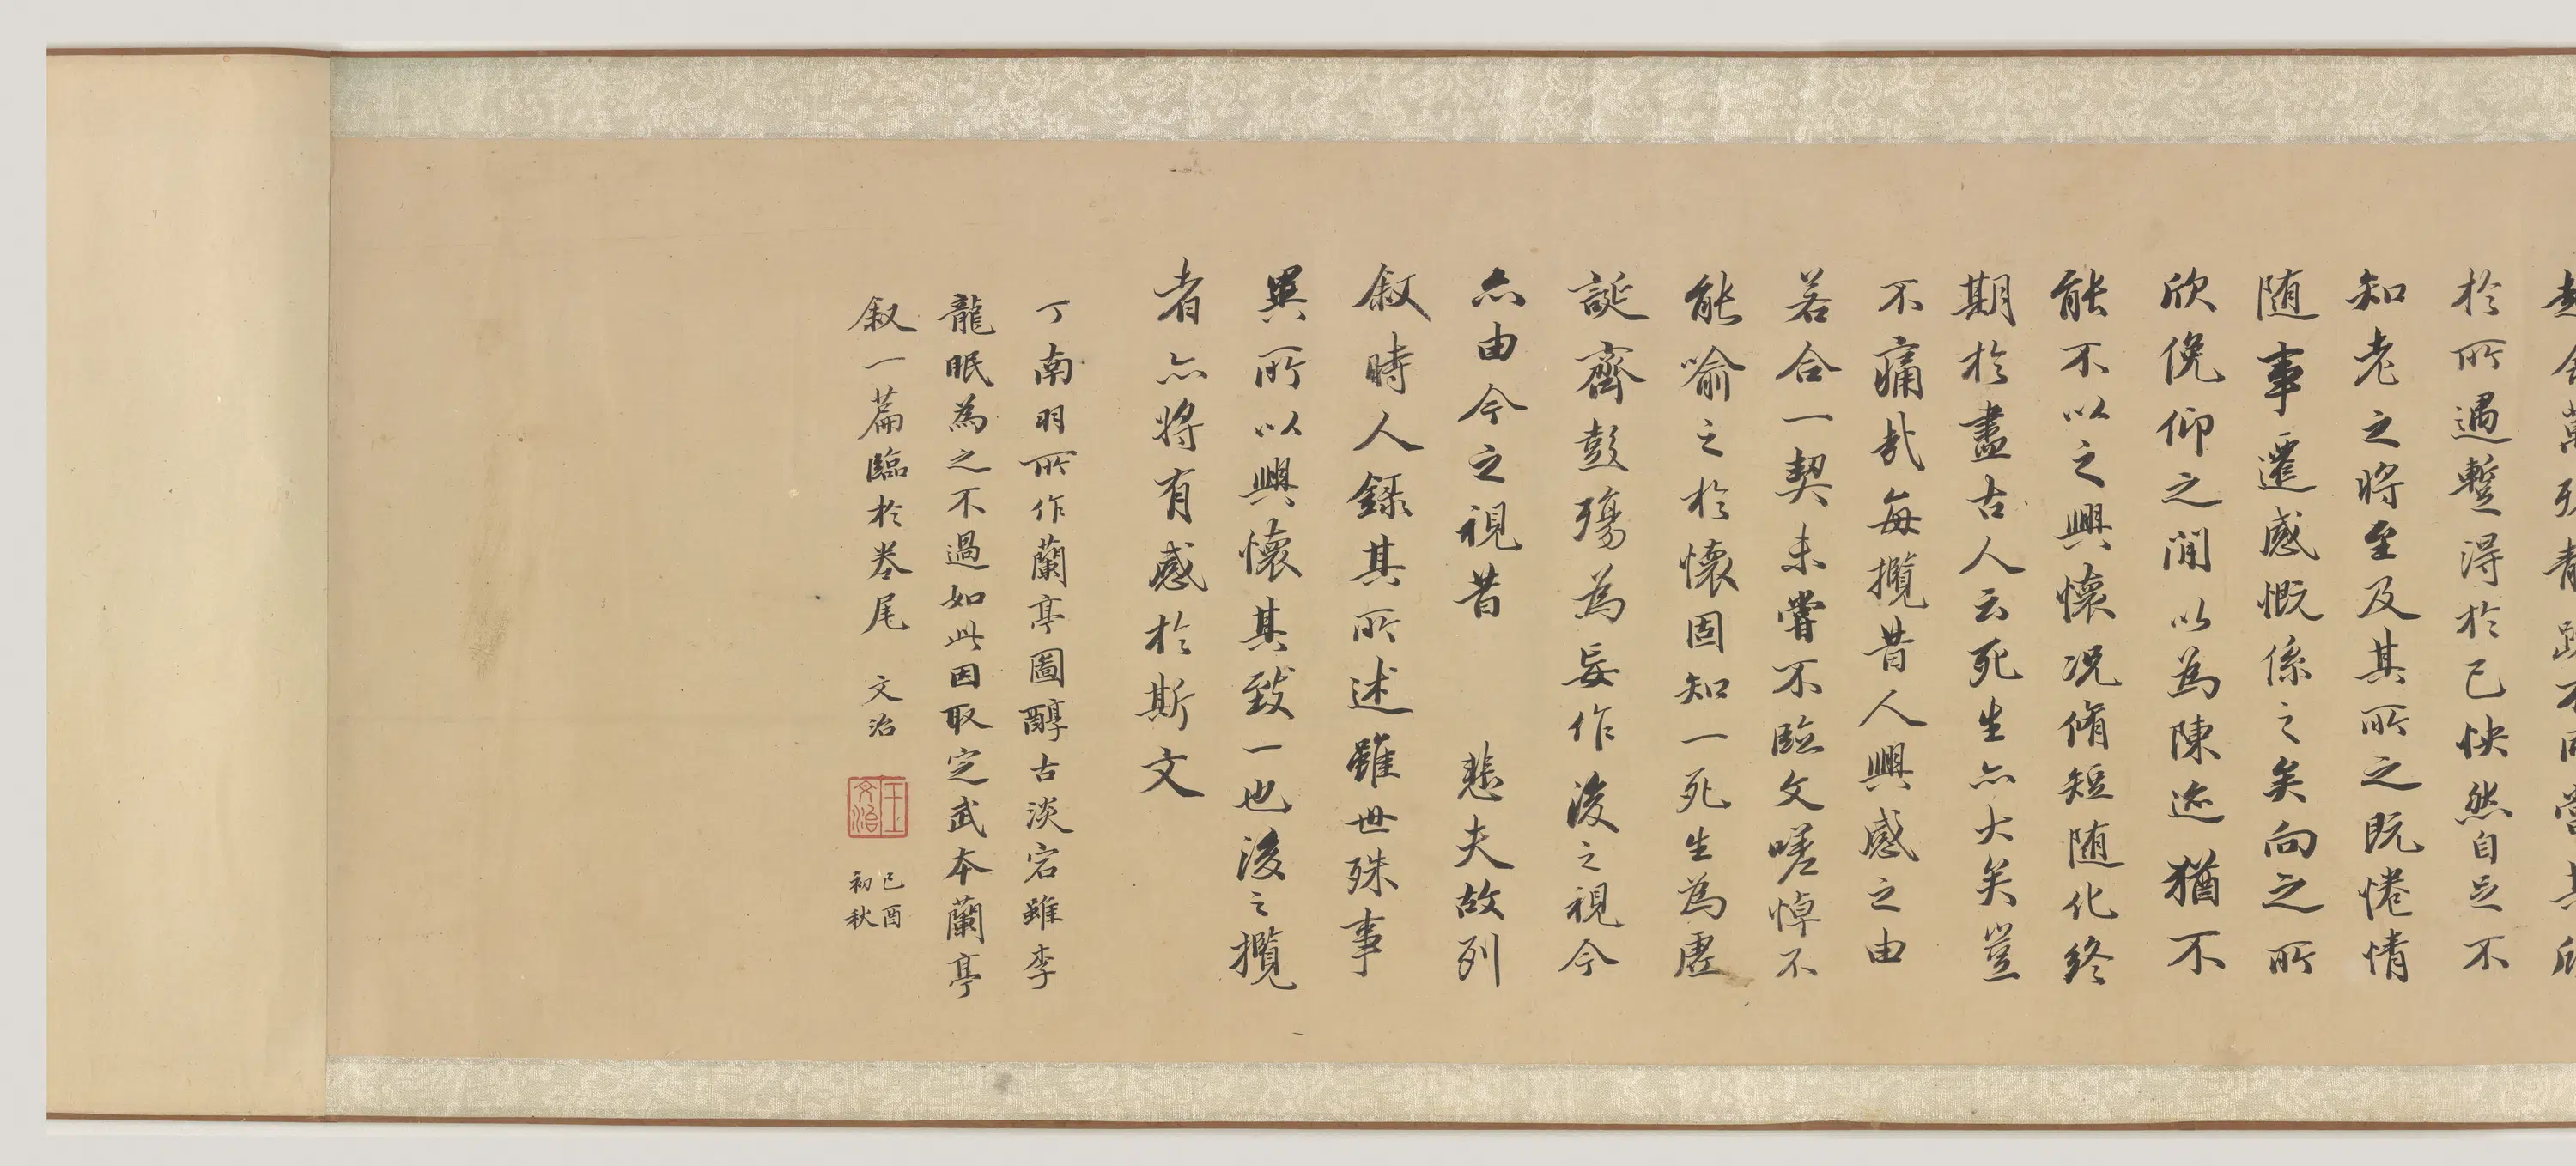 於所遇蹔得於己怏然自足不
知老之將至及其所之既惓情
随事遷感慨係之矣向之所
欣俛仰之閒以為陳迹猶不
能不以之興懷况脩短随化終
期於盡古人云死生亦大矣豈
不痛㢤每攬昔人興感之由
若合一契未甞不臨文嗟悼不
能喻之於懷固知一死生為虛
誕齊彭殤為妄作後之視今
亦由今之視昔 悲夫故列
叙時人録其所述雖世殊事
異所以興懷其致一也後之攬
者亦將有感於斯文
丁南羽所作蘭亭圖醇古淡宕雖李
龍眠為之不過如此因取定武本蘭亭
叙一篇臨於卷尾 文治
王文治
己酉
初秋